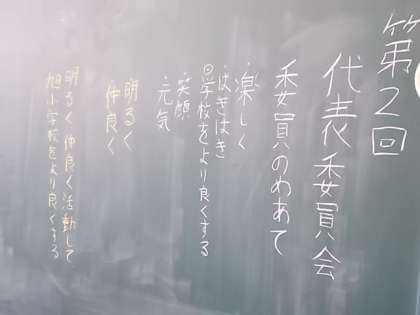 第2回
代表委員会
委員のめあて
・楽しく
・はきはき
◎学校をより良くする
・笑顔
・元気
明るく
仲良く
明るく仲良く活動して
旭小学校をより良くする